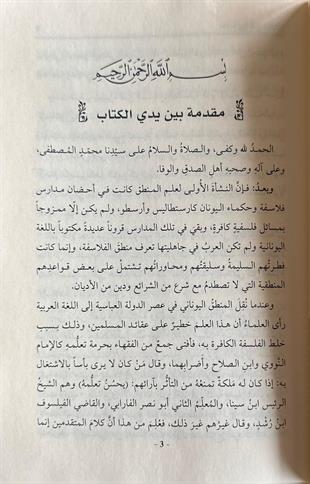 بسم الله الرحمن الرحيم
مقدمة بين يدي الكتاب
الحمدُ لله وكفى، والصلاةُ والسلامُ على سيّدنا محمّدٍ المصطفى،
وعلى آلهِ وصحبهِ أهل الصدقِ والوفا.
وبعدُ: فإنَّ النشأةَ الأولى لعلم المنطق كانت في أحضان مدارس
فلاسفة وحكماء اليونان كارستطاليس وأرسطو، ولم يكن إلّا ممزوجاً
بمسائل فلسفيةٍ كافرةٍ، وبقي في تلك المدارس قروناً عديدةً مكتوباً باللغة
اليونانية ولم تكن العربُ في جاهليتها تعرف منطقَ الفلاسفة، وإنما كانت
فطرتُهم السليمةُ وسليقتُهم ومحاوراتُهم تشتملُ على بعض قواعدِهم
المنطقية التي لا تصطدمُ مع شرع من الشرائع ودين من الأديان.
وعندما نُقِلَ المنطقُ اليوناني في عصر الدولة العباسية إلى اللغة العربية
رأى العلماءُ أن هذا العلم خطيرٌ على عقائد المسلمين، وذلك بسبب
خلط الفلسفة الكافرة به، فأفتى جمعٌ من الفقهاء بحرمة تعلُّمهِ كالإمام
النَّووي وابن الصلاح وأضرابهما، وقال مَنْ كان لا يرى بأساً بالاشتغال
به: إذا كان له مَلَكةٌ تمنعُهُ من التأثّر بآرائهم: (يحسُنُ تعلُّمهُ) وهم الشيخُ
الرئيس ابنُ سينا، والمُعلّمُ الثاني أبو نصر الفارابي، والقاضي الفيلسوف
ابنُ رُشْدٍ، وقال غيرُهم غيرَ ذلك، فعُلِمَ من هذا أنَّ كلامَ المتقدمين إنما
- 3 -